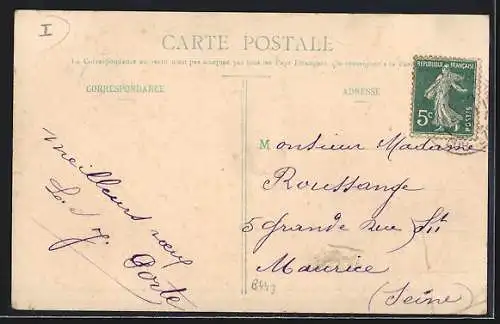 I
CARTE POSTALE
La Correspondance au recto n'est pas acceptée par tous les Pays Etrangers.
CORRESPONDANCE
ADRESSE
REPUBLIQUE FRANÇAISE
5c
POSTES
meilleurs vœux
Porte
Monsieur Madame
Roussange
5 grande rue St
Maurice
(Seine)